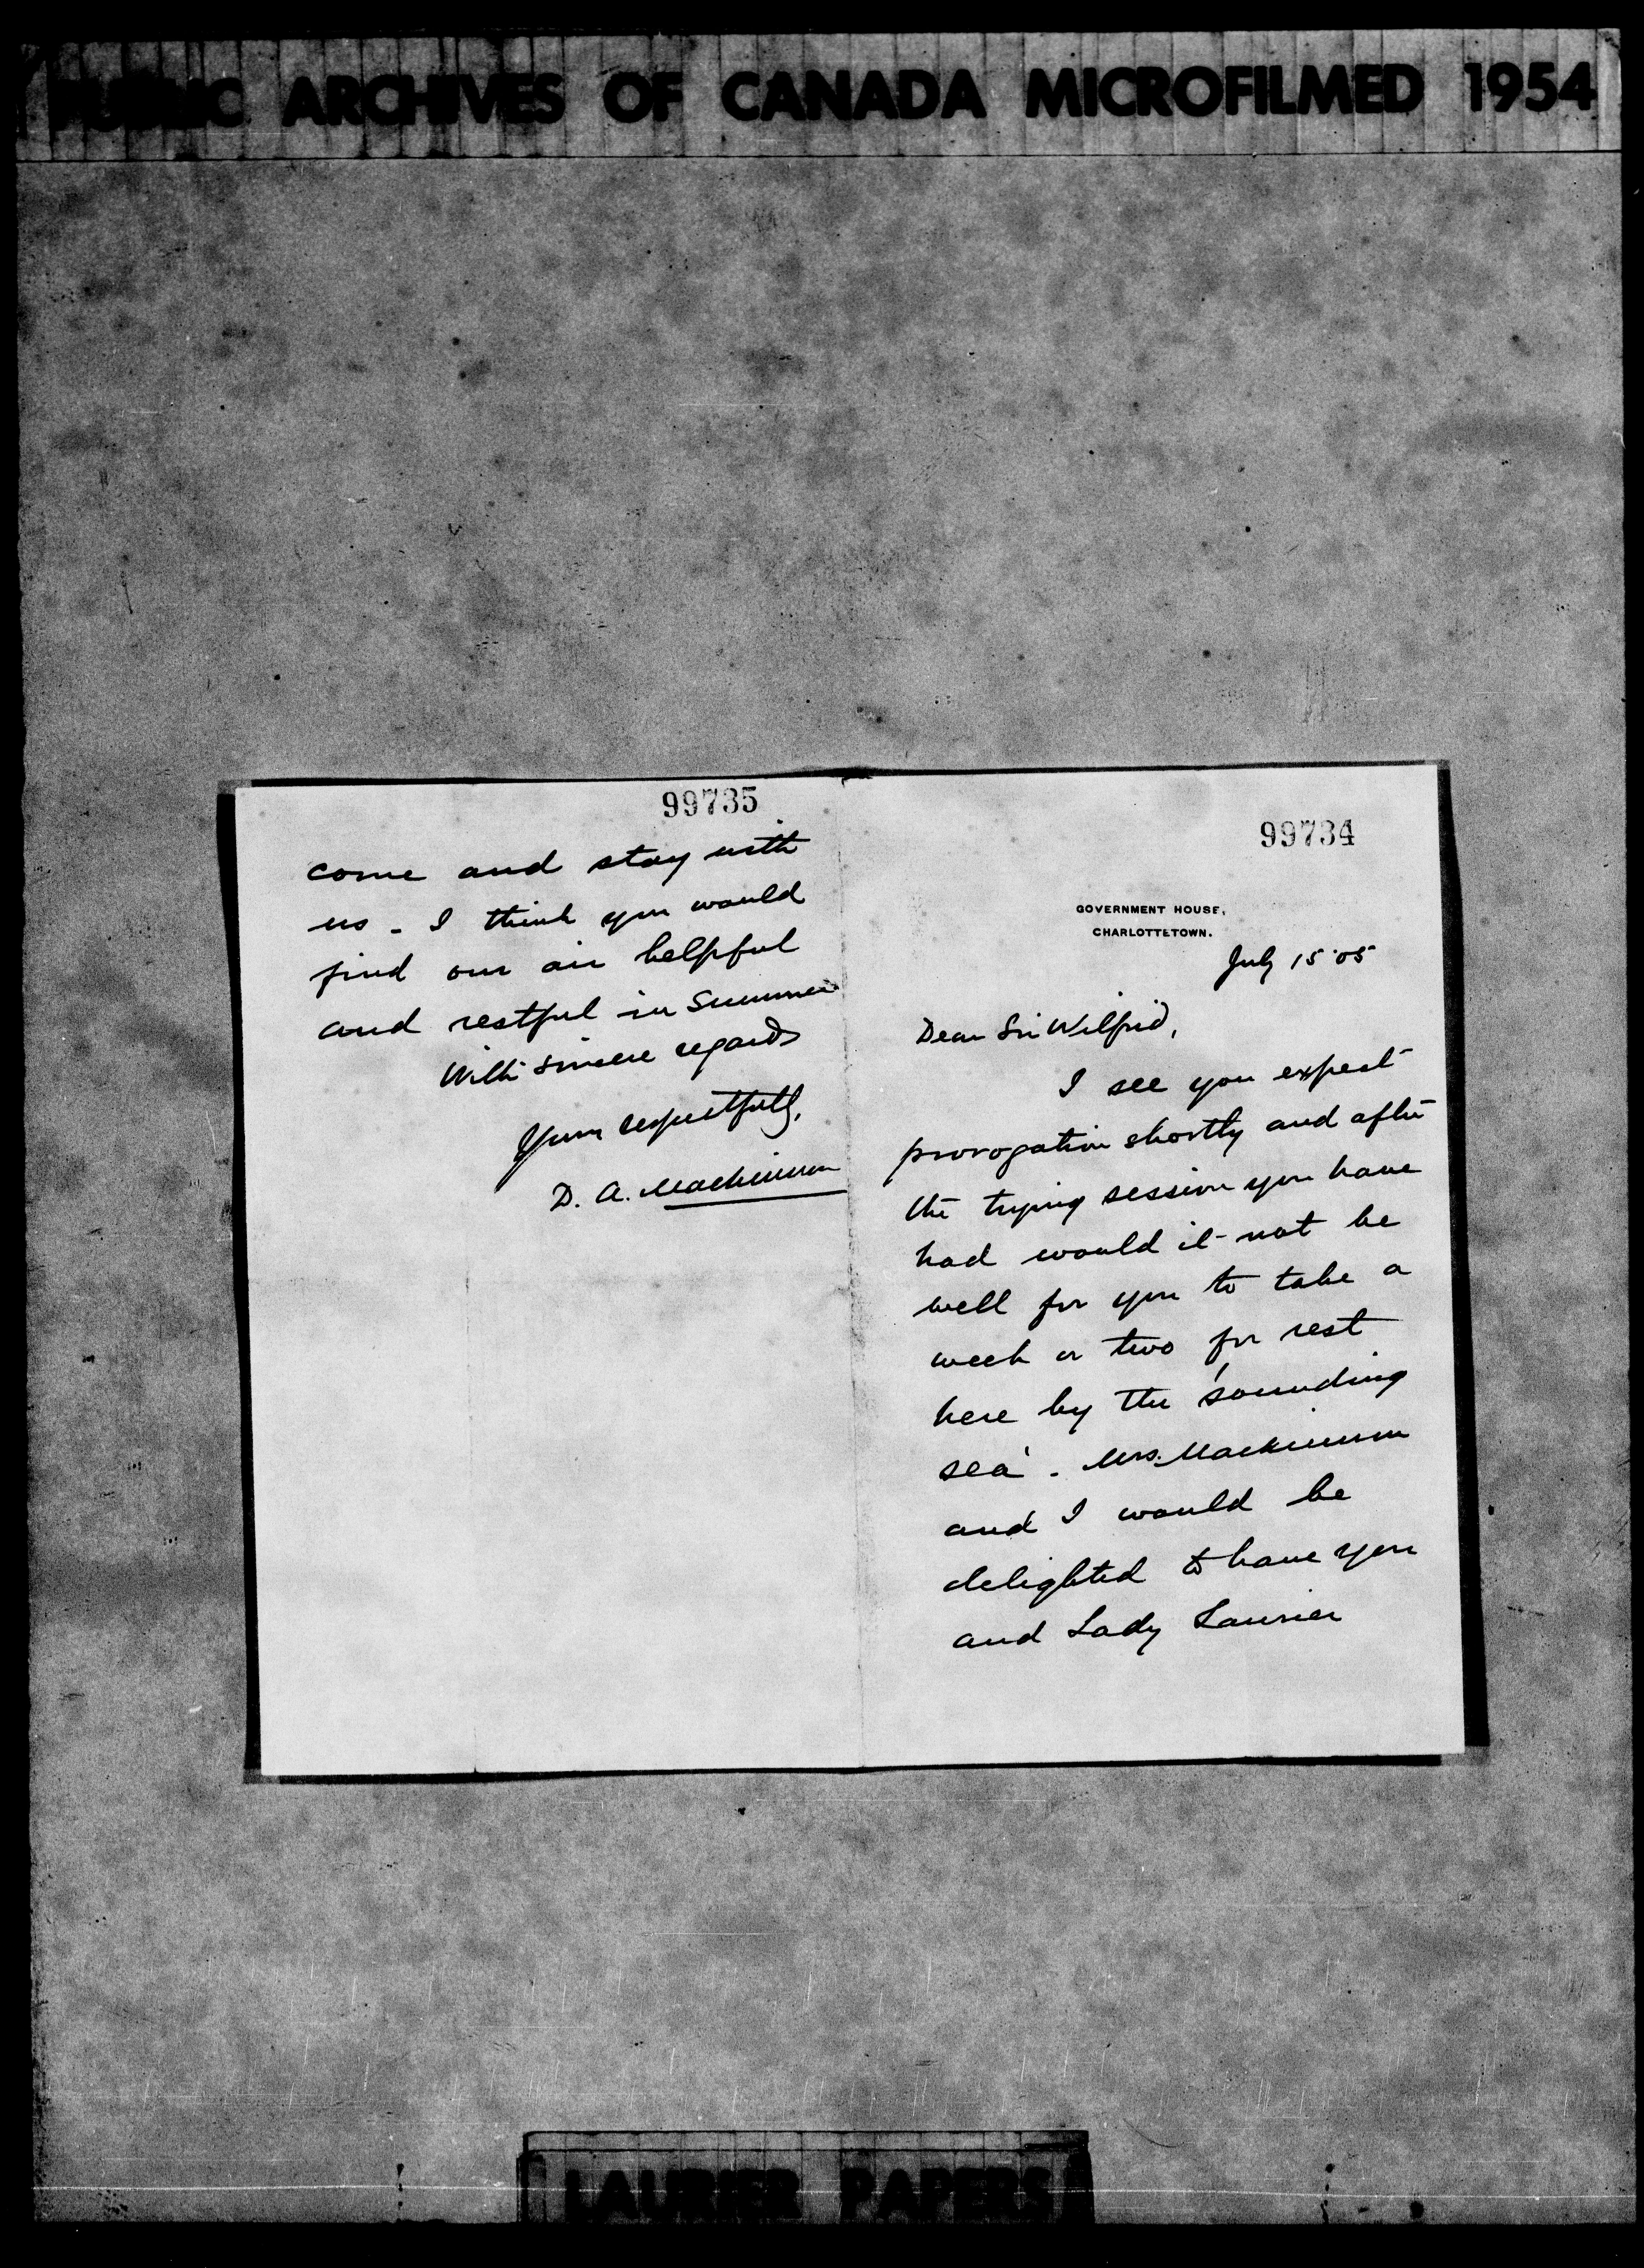 PUBLIC ARCHIVES OF CANADA MICROFILMED 1954
99734
GOVERNMENT HOUSE,
CHARLOTTETOWN.
July 15 '05
Dear Sir Wilfrid,
I see you expect
prorogation shortly and after
the trying session you have
had would it not be
well for you to take a
week or two for rest
here by the 'sounding
sea'. Mrs. Mackinnon
and I would be
delighted to have you
and Lady Laurier
99735
come and stay with
us - I think you would
find our air helpful
and restful in Summer
With sincere regards
Yours respectfully,
D. A. Mackinnon
LAURIER PAPERS